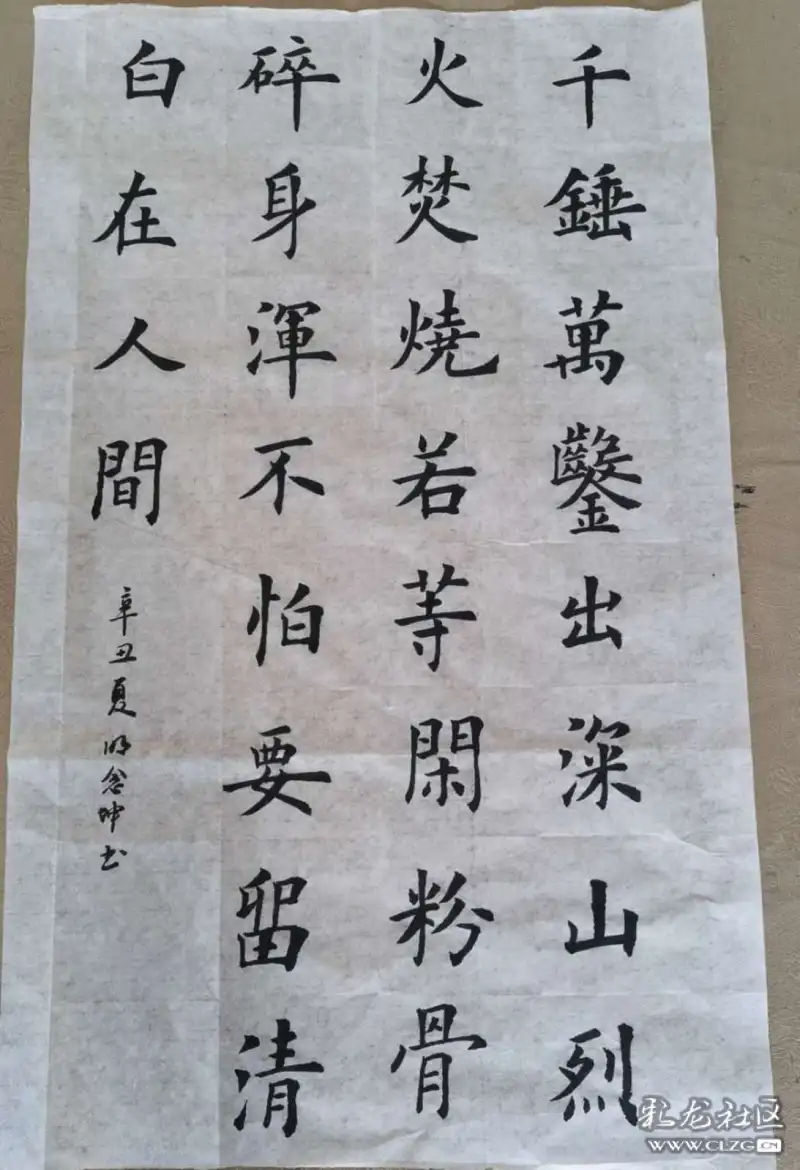 千錘萬鑿出深山烈
火焚燒若等閑粉骨
碎身渾不怕要留清
白在人間
辛丑夏 坤书
彩龙社区
WWW.CLZG.CN